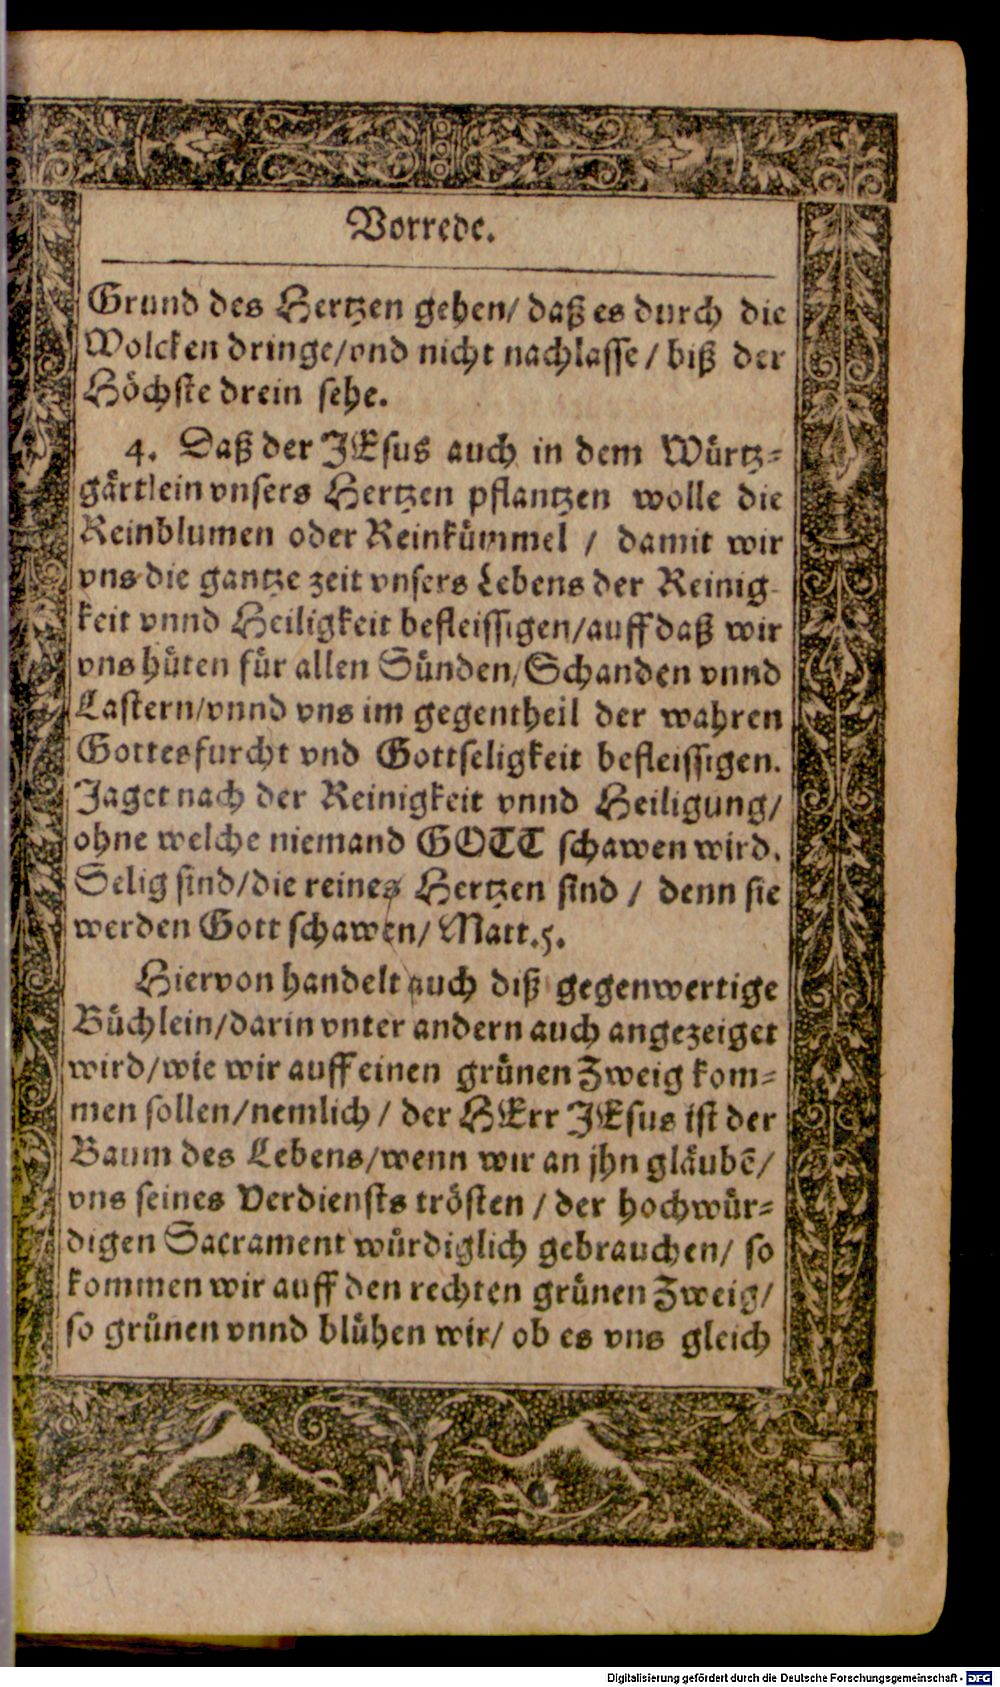 Vorrede.
Grund des Hertzen gehen/ daß es durch die
Wolcken dringe/vnd nicht nachlasse/ biß der
Höchste drein sehe.
4. Daß der JEsus auch in dem Würtz-
gärtlein vnsers Hertzen pflantzen wolle die
Reinblumen oder Reinkümmel / damit wir
vns die gantze zeit vnsers Lebens der Reinig-
keit vnnd Heiligkeit befleissigen/auff daß wir
vns hüten für allen Sünden/Schanden vnnd
Lastern/vnnd vns im gegentheil der wahren
Gottesfurcht vnd Gottseligkeit befleissigen.
Jaget nach der Reinigkeit vnnd Heiligung/
ohne welche niemand GOTT schawen wird.
Selig sind/die reines Hertzen sind / denn sie
werden Gott schawen/ Matt.5.
Hiervon handelt auch diß gegenwertige
Büchlein/darin vnter andern auch angezeiget
wird/wie wir auff einen grünen Zweig kom-
men sollen/nemlich / der HErr JEsus ist der
Baum des Lebens/wenn wir an jhn gläubẽ/
vns seines Verdiensts trösten / der hochwür-
digen Sacrament würdiglich gebrauchen/ so
kommen wir auff den rechten grünen Zweig/
so grünen vnnd blühen wir/ ob es vns gleich
Digitalisierung gefördert durch die Deutsche Forschungsgemeinschaft - DFG